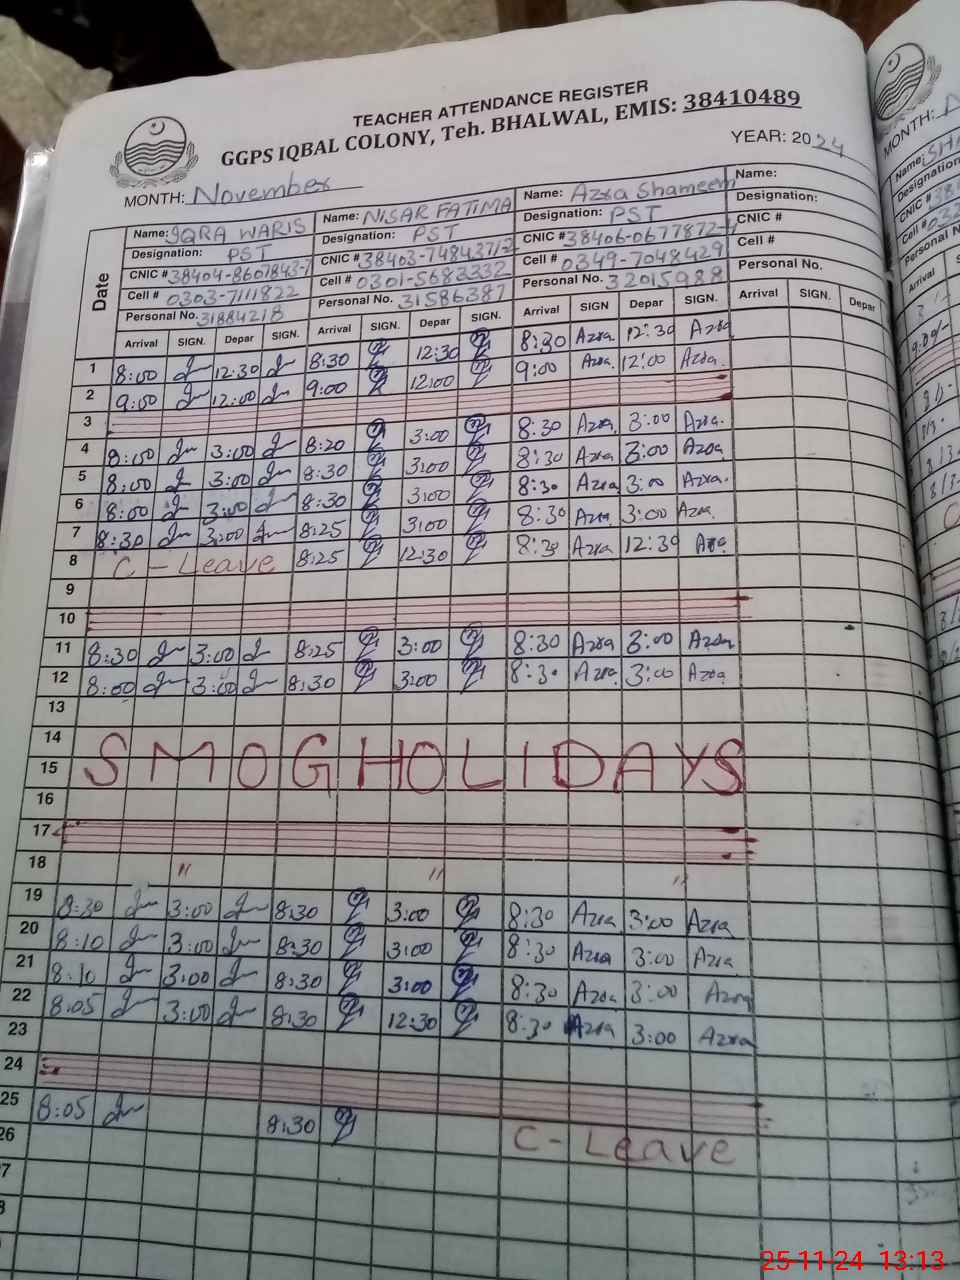 TEACHER ATTENDANCE REGISTER
GGPS IQBAL COLONY, Teh. BHALWAL, EMIS: 38410489
MONTH: November YEAR: 2024
Date
Name: IQRA WARIS Name: NISAR FATIMA Name: Azra Shameem Name:
Designation: PST Designation: PST Designation: PST Designation:
CNIC # 38404-8607843-7 CNIC # 38403-7484371/2 CNIC # 38406-0677872-4 CNIC #
Cell # 0303-7111822 Cell # 0301-5683332 Cell # 0349-7048429 Cell #
Personal No. 31884218 Personal No. 31586387 Personal No. 32015988 Personal No.
Arrival SIGN. Depar SIGN. Arrival SIGN. Depar SIGN. Arrival SIGN. Depar SIGN. Arrival SIGN. Depar
1 8:00 12:30 8:30 12:30 8:30 Azra 12:30 Azra
2 9:00 12:00 9:00 12:00 9:00 Azra. 12:00 Azra.
3
4 8:00 3:00 8:20 3:00 8:30 Azra 3:00 Azra.
5 8:00 3:00 8:30 3:00 8:30 Azra 3:00 Azra
6 8:00 3:00 8:30 3:00 8:30 Azra 3:00 Azra.
7 8:30 3:00 8:25 3:00 8:30 Azra 3:00 Azra.
8 C - Leave 8:25 12:30 8:30 Azra 12:30 Azra
9
10
11 8:30 3:00 8:25 3:00 8:30 Azra 3:00 Azra
12 8:00 3:00 8:30 3:00 8:30 Azra 3:00 Azra
13
14
15 SMOG HOLIDAYS
16
17
18 " " "
19 8:30 3:00 8:30 3:00 8:30 Azra 3:00 Azra
20 8:10 3:00 8:30 3:00 8:30 Azra 3:00 Azra
21 8:10 3:00 8:30 3:00 8:30 Azra 3:00 Azra
22 8:05 3:00 8:30 12:30 8:30 Azra 3:00 Azra
23
24
25 8:05 8:30 C - Leave
26
25-11-24 13:13